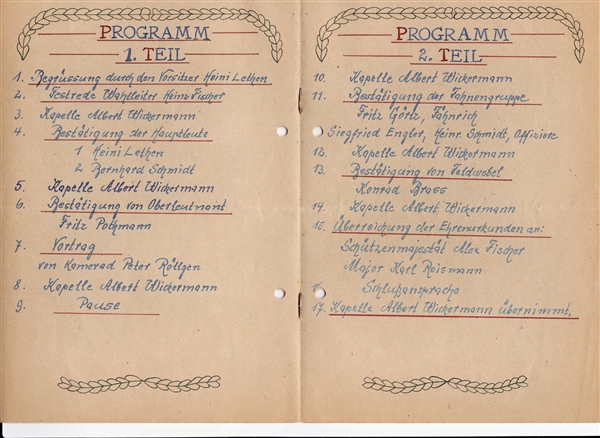 PROGRAMM
1. TEIL
1. Begrüssung durch den Vorsitzer Heini Lethen
2. Festrede Wahlleiter Heinz Fischer
3. Kapelle Albert Wickermann
4. Bestätigung der Hauptleute
1 Heini Lethen
2 Bernhard Schmidt
5. Kapelle Albert Wickermann
6. Bestätigung von Oberleutnant
Fritz Pothmann
7. Vortrag
von Kamerad Peter Röttgen
8. Kapelle Albert Wickermann
9. Pause
PROGRAMM
2. TEIL
10. Kapelle Albert Wickermann
11. Bestätigung der Fahnengruppe
Fritz Görtz, Fähnrich
Siegfried Engler, Heinr. Schmidt, Offiziere
12. Kapelle Albert Wickermann
13. Bestätigung von Feldwebel
Konrad Brass
14. Kapelle Albert Wickermann
15. Überreichung der Ehrenurkunden an:
Schützenmajestät Alex Fischer
Major Karl Reismann
16 Schlußansprache
17. Kapelle Albert Wickermann übernimmt.